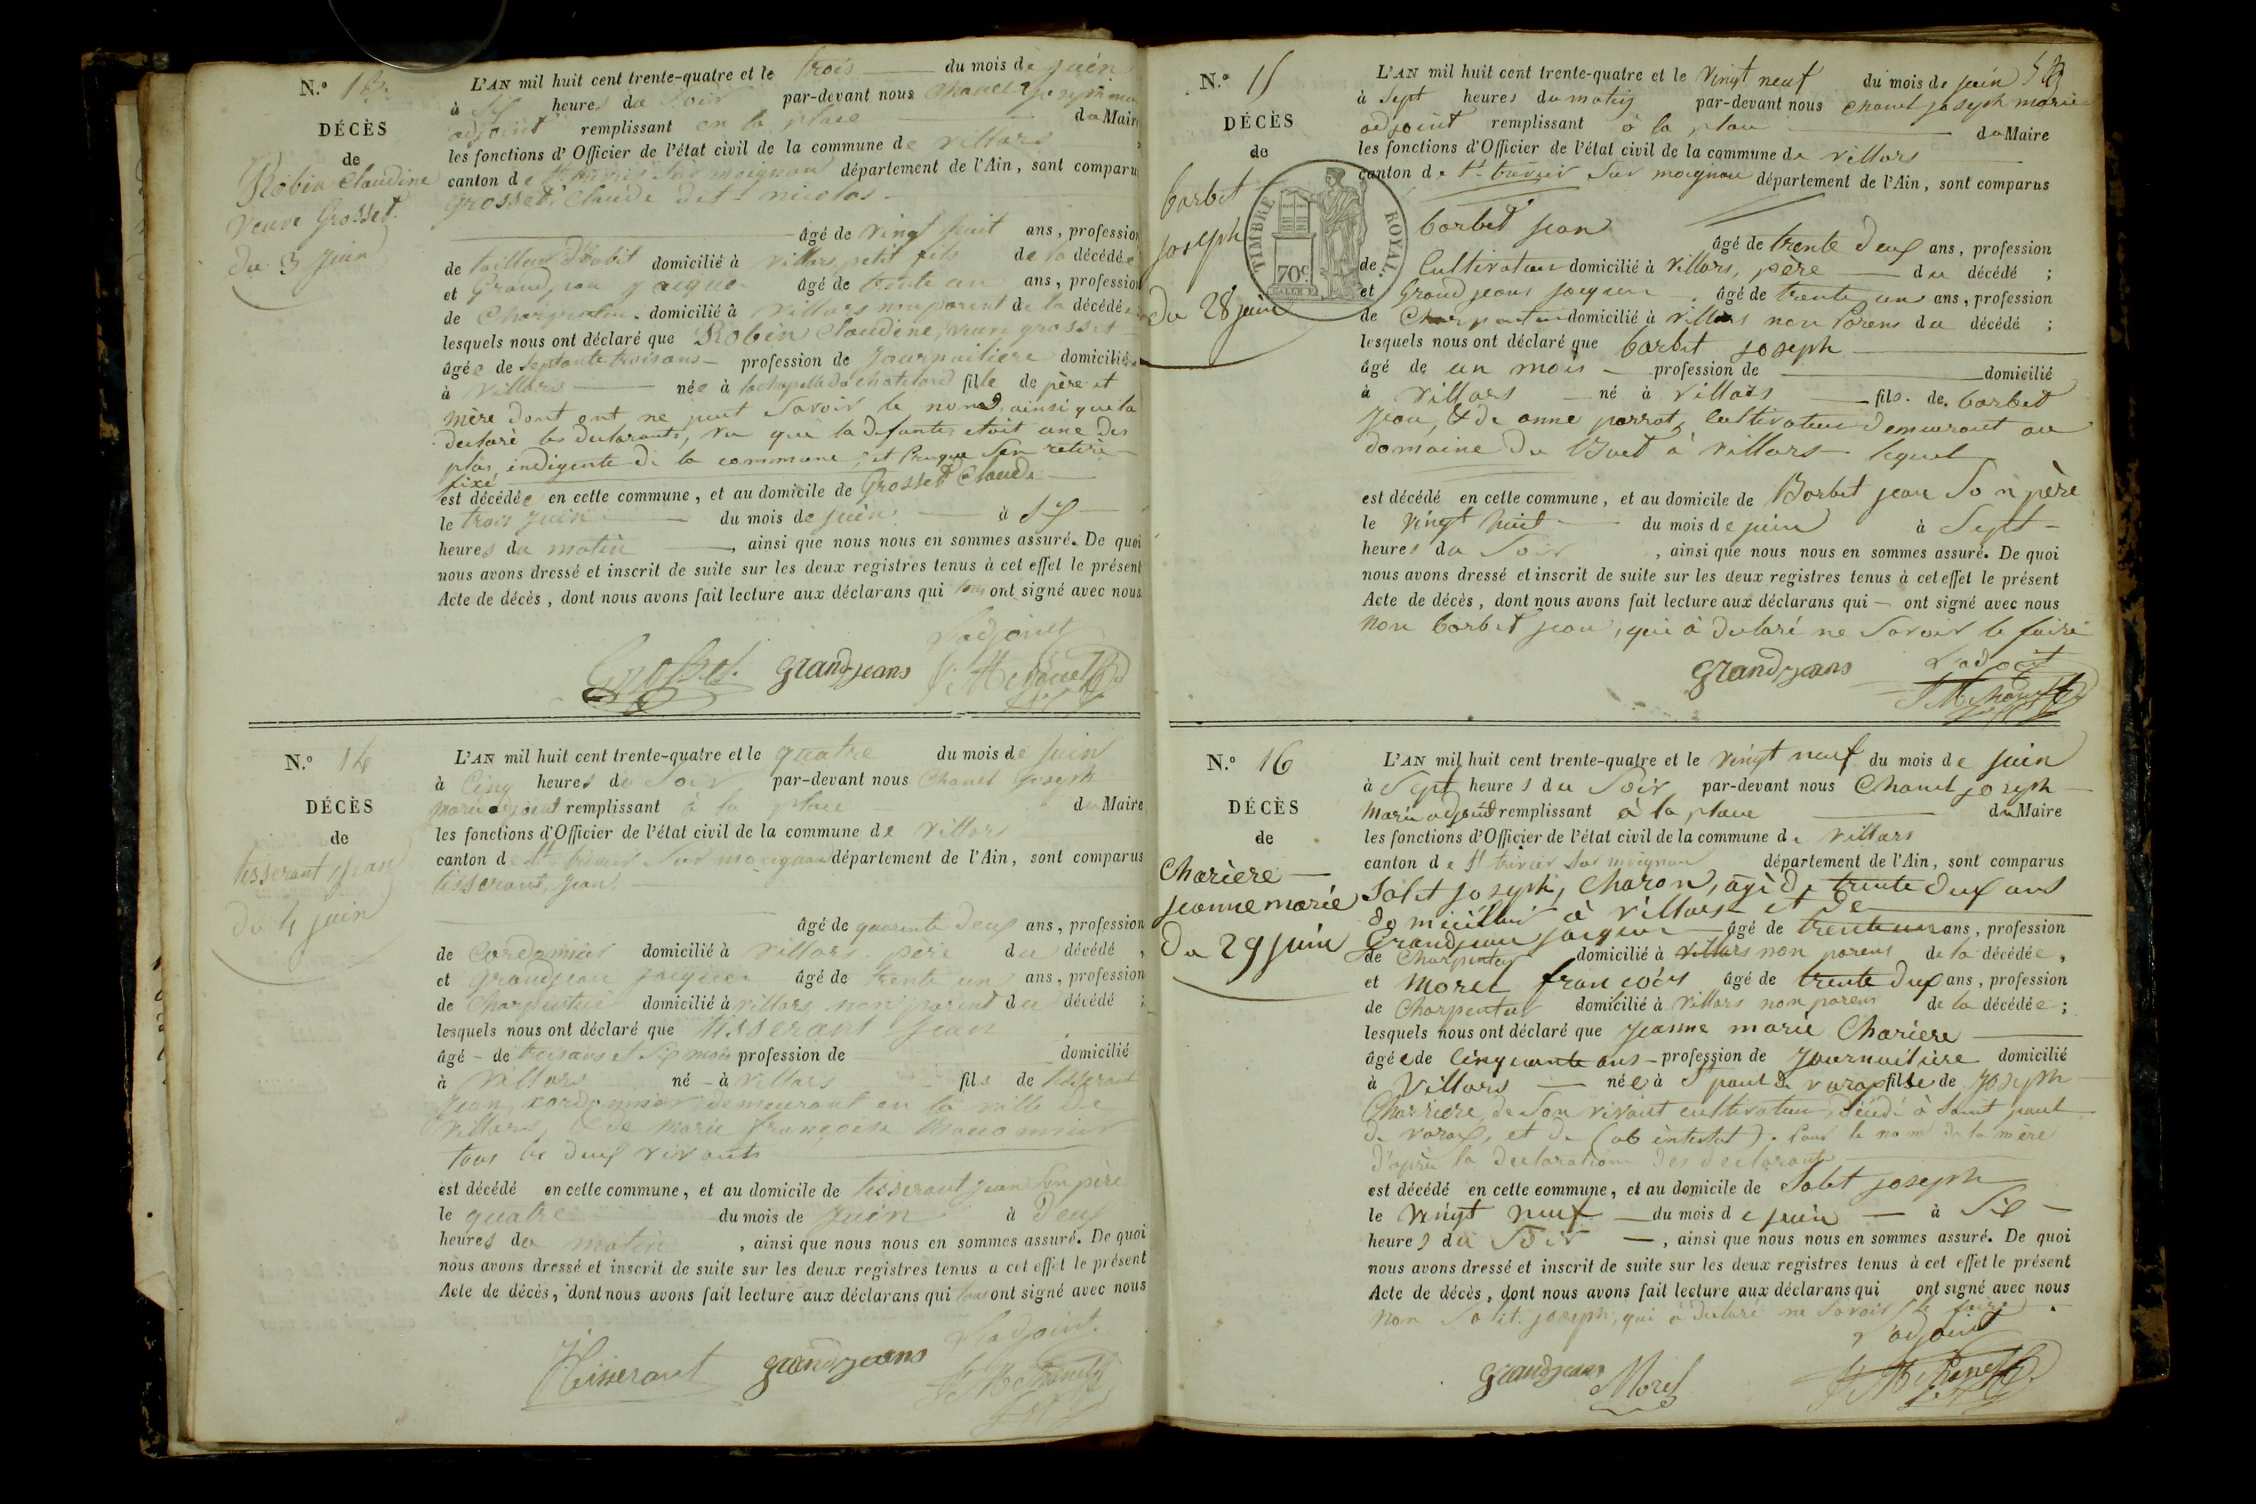 N.º 13
DÉCÈS
de
Robin Claudine
Veuve Grosset.
du 3 Juin
L'AN mil huit cent trente-quatre et le trois du mois de juin
à six heures du soir par-devant nous Chanel Joseph marie
adjoint remplissant en la place du Maire
les fonctions d'Officier de l'état civil de la commune de villars
canton de sur moignan département de l'Ain, sont comparus
Grosset, Claude dit nicolas
âgé de vingt huit ans, profession
de tailleur d'habit domicilié à villars, petit fils de la décédée
et Grandjean jacques âgé de trente un ans, profession
de Charpentier domicilié à villars non parent de la décédée
lesquels nous ont déclaré que Robin Claudine, veuve grosset
âgée de septante trois ans profession de journailiere domiciliée
à villars née à lachapelle du chatelard fille de père et
mère dont ont ne peut savoir le nom, ainsi que la
declaré les declarants, vu que la defunte etoit une des
plus indigente de la commune, et
fixé
est décédée en cette commune, et au domicile de Grosset Claude
le trois juin du mois de juin à six
heures du matin, ainsi que nous nous en sommes assuré. De quoi
nous avons dressé et inscrit de suite sur les deux registres tenus à cet effet le présent
Acte de décès, dont nous avons fait lecture aux déclarans qui tous ont signé avec nous
L'adjoint
Grosset grandjeans J. M. Chanel
N.º 14
DÉCÈS
de
tisserant jean
du 4 juin
L'AN mil huit cent trente-quatre et le quatre du mois de juin
à cinq heures du soir par-devant nous Chanel Joseph
marie adjoint remplissant à la place du Maire
les fonctions d'Officier de l'état civil de la commune de villars
canton de st trivier sur moignan département de l'Ain, sont comparus
tisserant, jean
âgé de quarante deux ans, profession
de Cordonnier domicilié à villars père du décédé,
et grandjean jacques âgé de trente un ans, profession
de Charpentier domicilié à villars, non parent du décédé;
lesquels nous ont déclaré que tisserant jean
âgé de trois ans et six mois profession de domicilié
à villars né à villars fils de tisserant
jean, cordonnier demeurant en la ville de
villars, & de marie françoise
tous les deux vivants
est décédé en cette commune, et au domicile de tisserant jean son père
le quatre du mois de juin à deux
heures du matin, ainsi que nous nous en sommes assuré. De quoi
nous avons dressé et inscrit de suite sur les deux registres tenus a cet effet le présent
Acte de décès, dont nous avons fait lecture aux déclarans qui tous ont signé avec nous
L'adjoint.
Tisserant grandjeans J. M. Chanel
N.º 15
DÉCÈS
de
barbet
joseph
du 28 juin
TIMBRE ROYAL.
70c.
L'AN mil huit cent trente-quatre et le vingt neuf du mois de juin
à sept heures du matin par-devant nous chanel joseph marie
adjoint remplissant à la place du Maire
les fonctions d'Officier de l'état civil de la commune de villars
canton de st trivier sur moignan département de l'Ain, sont comparus
barbet jean
âgé de trente deux ans, profession
de Cultivateur domicilié à villars, père du décédé;
et Grand jeans jacques âgé de trente un ans, profession
de Charpentier domicilié à villars non parens du décédé;
lesquels nous ont déclaré que barbet joseph
âgé de un mois profession de domicilié
à villars né à villars fils de barbet
jean, & de anne parrot, cultivateur demeurant au
domaine du à villars lequel
est décédé en cette commune, et au domicile de Barbet jean son père
le vingt huit du mois de juin à sept
heures du soir, ainsi que nous nous en sommes assuré. De quoi
nous avons dressé et inscrit de suite sur les deux registres tenus à cet effet le présent
Acte de décès, dont nous avons fait lecture aux déclarans qui ont signé avec nous
non barbet jean, qui à declaré ne savoir le faire
grandjeans L'adjoint
J M Chanel
N.º 16
DÉCÈS
de
Charière
jeanne marie
du 29 juin
L'AN mil huit cent trente-quatre et le vingt neuf du mois de juin
à sept heures du soir par-devant nous Chanel joseph
marie adjoint remplissant à la place du Maire
les fonctions d'Officier de l'état civil de la commune de villars
canton de st trivier sur moignan département de l'Ain, sont comparus
Salet joseph, Charon, âgé de trente deux ans
domicilié à villars et de
Grandjean jacques âgé de trente un ans, profession
de Charpentier domicilié à villars non parens de la décédée,
et Morel françois âgé de trente deux ans, profession
de Charpentier domicilié à villars non parens de la décédée;
lesquels nous ont déclaré que jeanne marie Chariere
âgée de cinquante ans profession de journailière domicilié
à villars née à st paul de varax fille de joseph
Charriere, de son vivant cultivateur, décédé à saint paul
de varax, et de (ab intestat). pour le nom de la mère
d'après la declaration des declarants
est décédé en cette commune, et au domicile de Salet joseph
le vingt neuf du mois de juin à six
heures du soir, ainsi que nous nous en sommes assuré. De quoi
nous avons dressé et inscrit de suite sur les deux registres tenus à cet effet le présent
Acte de décès, dont nous avons fait lecture aux déclarans qui ont signé avec nous
non Salet joseph, qui à declaré ne savoir le faire.
L'adjoint
grandjeans Morel J. M. Chanel